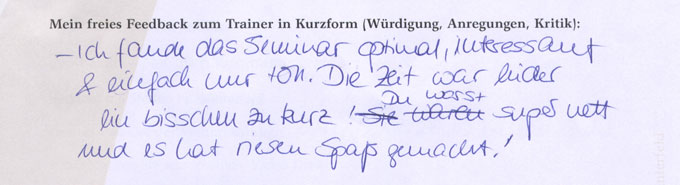 Mein freies Feedback zum Trainer in Kurzform (Würdigung, Anregungen, Kritik):
– Ich fande das Seminar optimal, interessant
& einfach nur toll. Die Zeit war leider
ein bisschen zu kurz! Sie waren Du warst super nett
und es hat riesen Spaß gemacht!